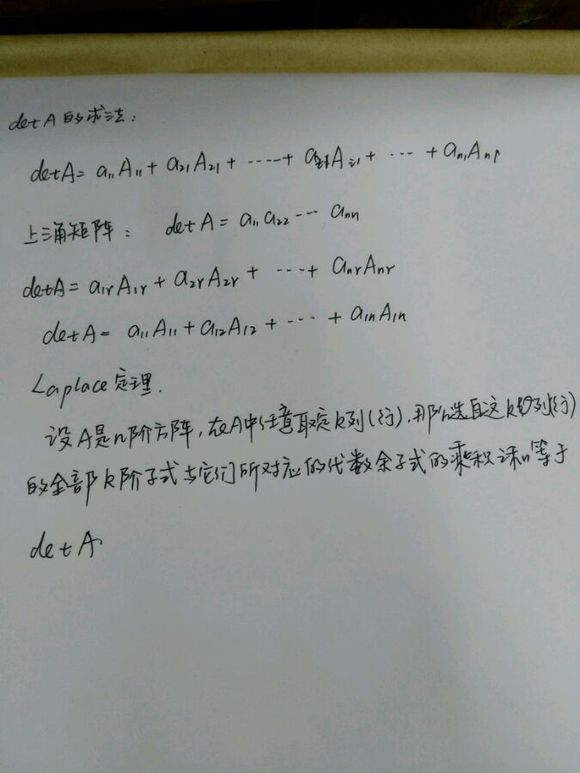 det A 的求法:
det A = a₁₁A₁₁ + a₂₁A₂₁ + ····· + aᵢ₁Aᵢ₁ + ··· + aₙ₁Aₙ₁
上三角矩阵: det A = a₁₁a₂₂ ··· aₙₙ
det A = a₁ᵣA₁ᵣ + a₂ᵣA₂ᵣ + ··· + aₙᵣAₙᵣ
det A = a₁₁A₁₁ + a₁₂A₁₂ + ··· + a₁ₙA₁ₙ
Laplace 定理.
设A是n阶方阵,在A中任意取定k列(行),那么选自这k列(行)
的全部k阶子式与它们所对应的代数余子式的乘积之和等于
det A.